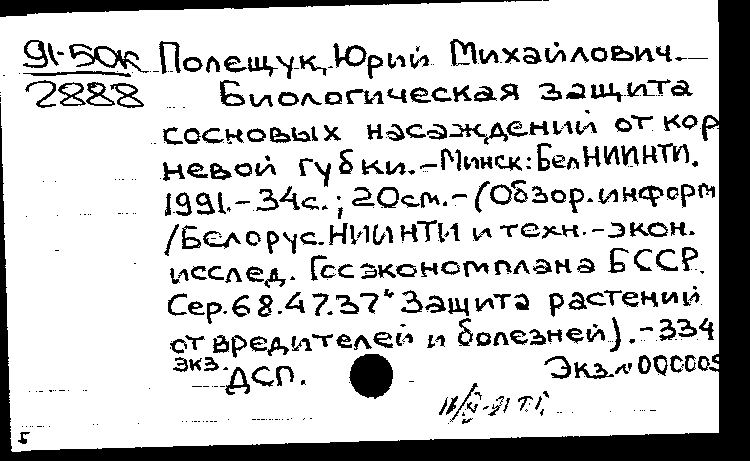 91-50к Полещук, Юрий Михайлович.
2888 Биологическая защита
сосновых насаждений от кор
невой губки.-Минск: БелНИИНТИ.
1991.-34с.; 20см.-(Обзор.информ
/Белорус.НИИНТИ и техн.-экон.
исслед. Госэкономплана БССР.
Сер.68.47.37"Защита растений
от вредителей и болезней).-334
экз.
ДСП. Экз.№ 000005